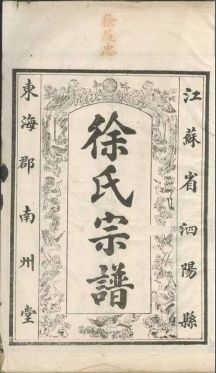 江蘇省泗陽縣
徐氏宗譜
東海郡南州堂